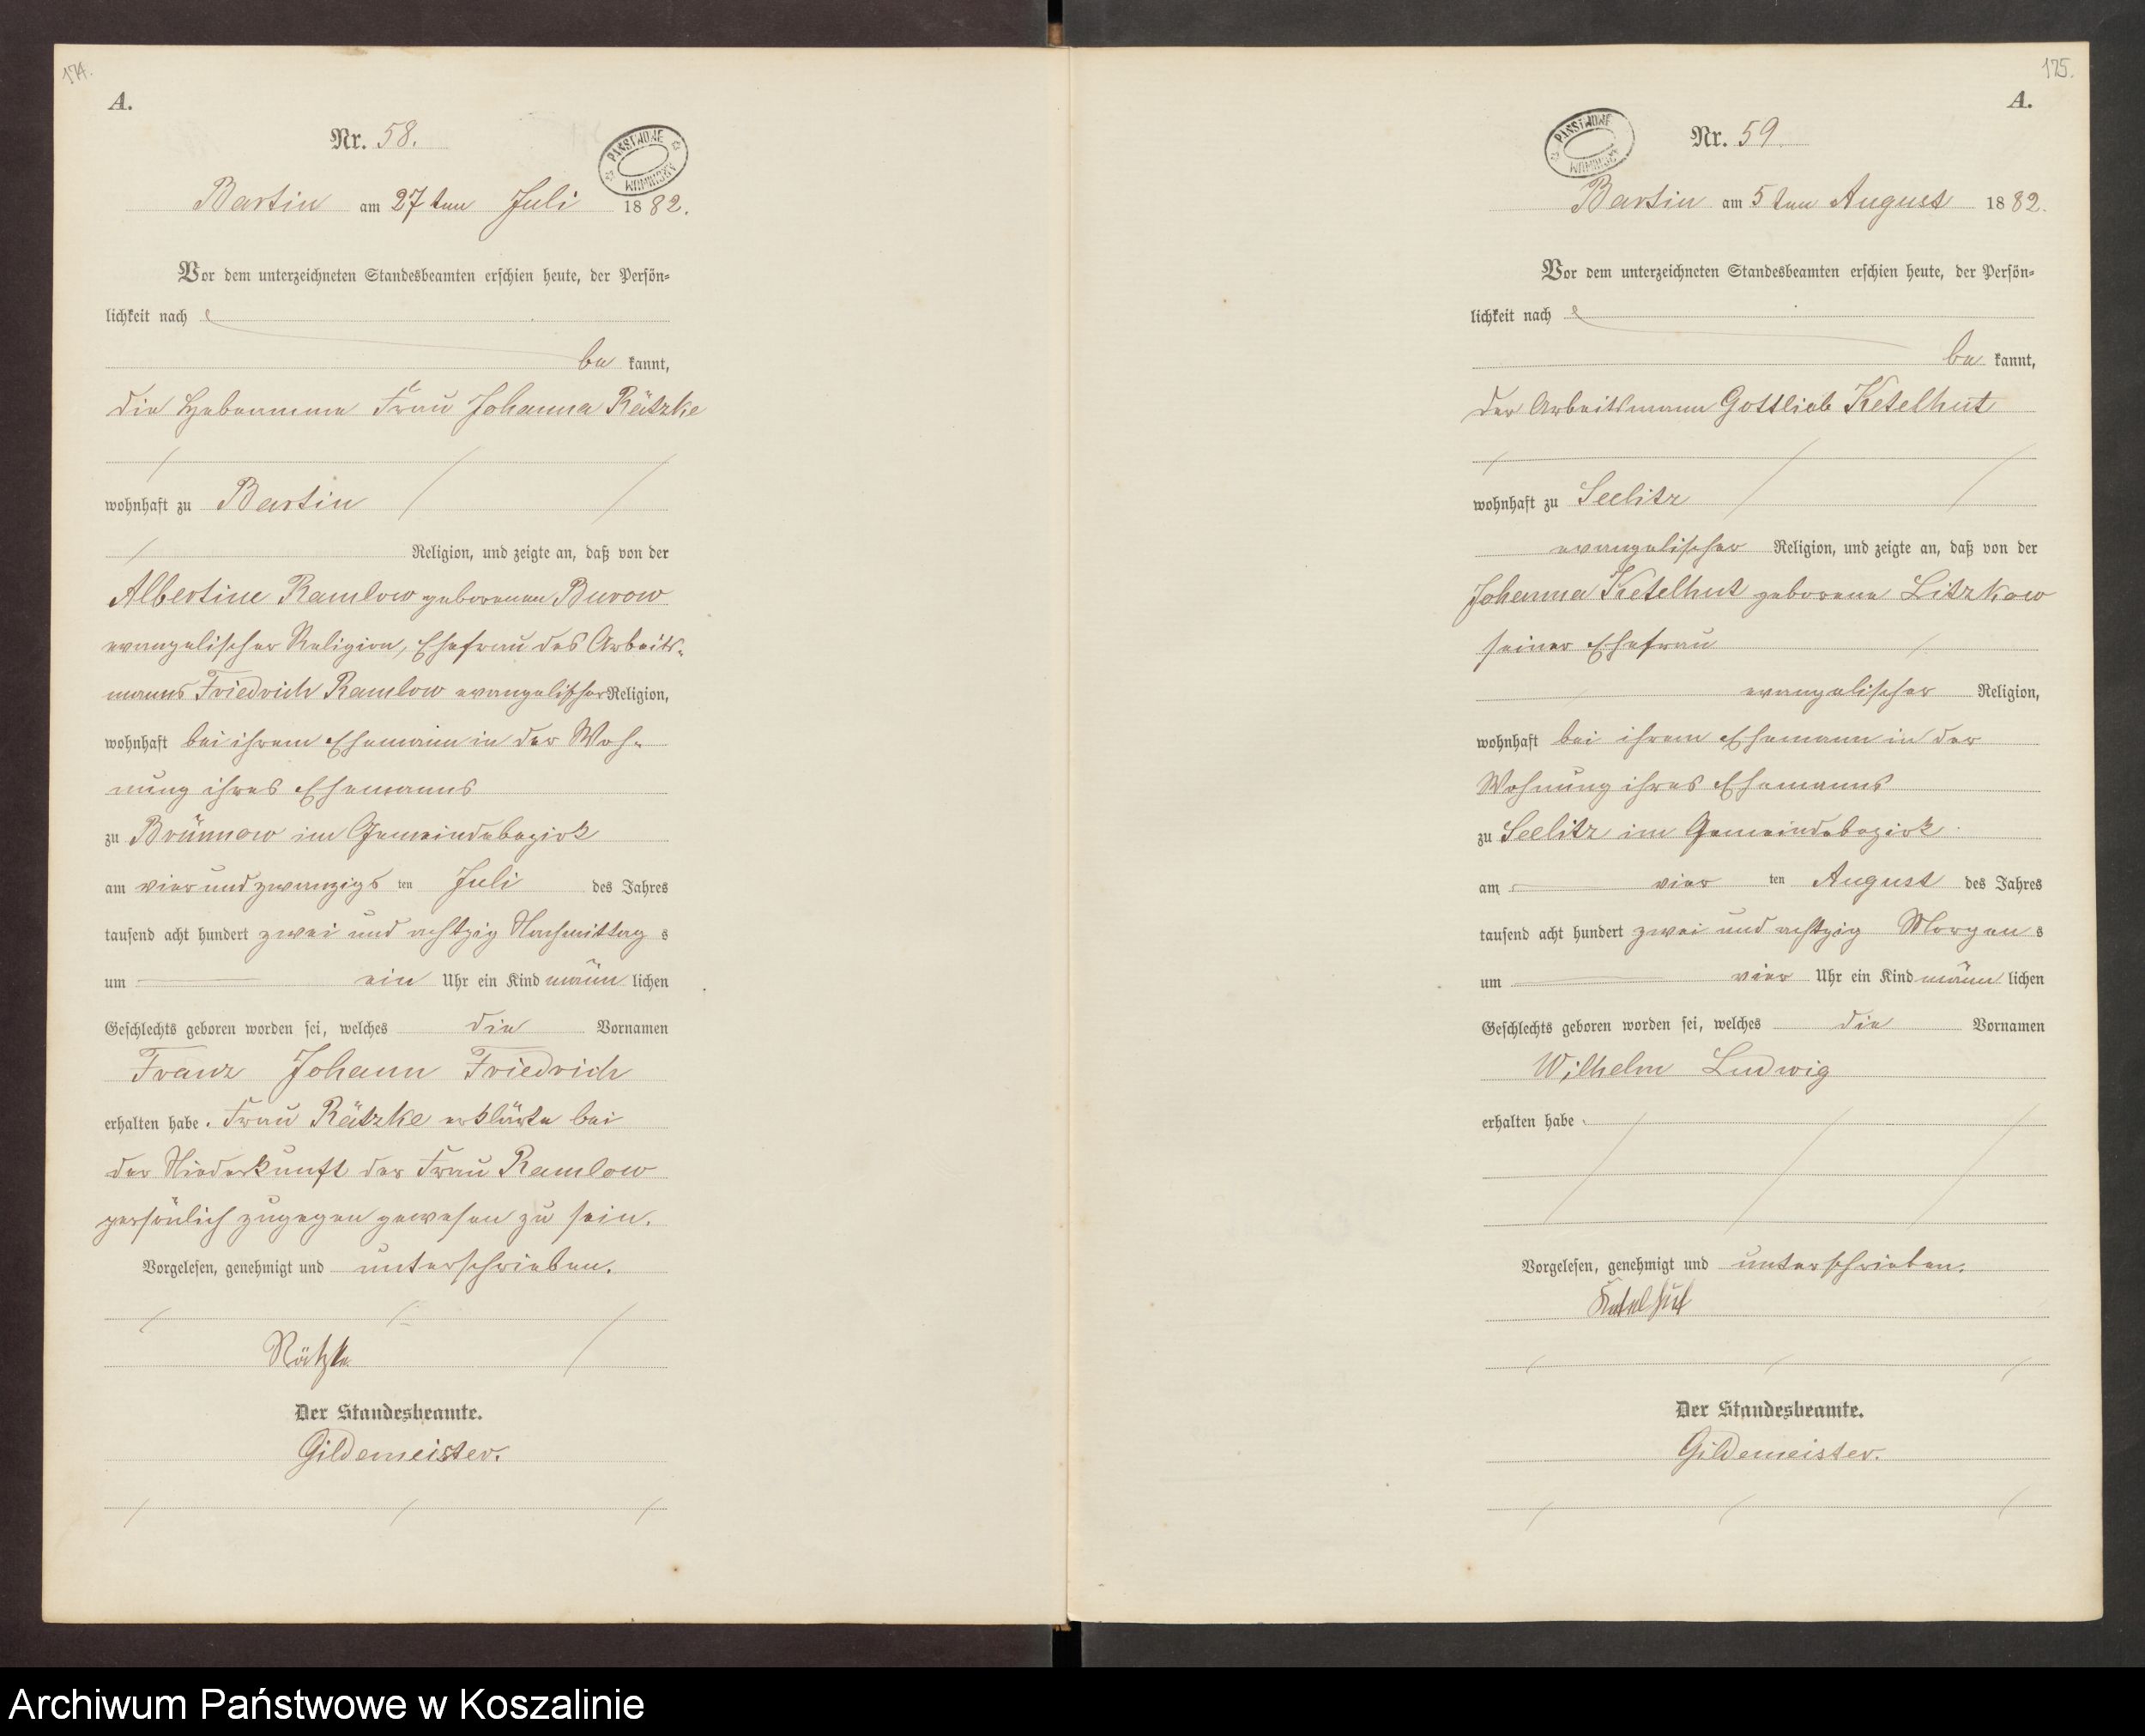 174.
A.
Nr. 58.
PAŃSTWOWE
ARCHIWUM
Bartin am 27ten Juli 1882.
Vor dem unterzeichneten Standesbeamten erschien heute, der Persön-
lichkeit nach
be kannt,
die Hebeamme Frau Johanna Rätzke
wohnhaft zu Bartin
Religion, und zeigte an, daß von der
Albertine Ramlow geborenen Burow
evangelischer Religion, Ehefrau des Arbeits-
manns Friedrich Ramlow evangelischer Religion,
wohnhaft bei ihrem Ehemann in der Woh-
nung ihres Ehemanns
zu Brünnow im Gemeindebezirk
am vier und zwanzigs ten Juli des Jahres
tausend acht hundert zwei und achtzig Nachmittag s
um ein Uhr ein Kind männ lichen
Geschlechts geboren worden sei, welches die Vornamen
Franz Johann Friedrich
erhalten habe. Frau Rätzke erklärte bei
der Niederkunft der Frau Ramlow
persönlich zugegen gewesen zu sein.
Vorgelesen, genehmigt und unterschrieben.
Rätzke
Der Standesbeamte.
Gildemeister.
175.
A.
PAŃSTWOWE
ARCHIWUM
Nr. 59.
Bartin am 5ten August 1882.
Vor dem unterzeichneten Standesbeamten erschien heute, der Persön-
lichkeit nach
be kannt,
der Arbeitsmann Gottlieb Ketelhut
wohnhaft zu Seelitz
evangelischer Religion, und zeigte an, daß von der
Johanna Ketelhut geborene Litzkow
seiner Ehefrau
evangelischer Religion,
wohnhaft bei ihrem Ehemann in der
Wohnung ihres Ehemanns
zu Seelitz im Gemeindebezirk
am vier ten August des Jahres
tausend acht hundert zwei und achtzig Morgen s
um vier Uhr ein Kind männ lichen
Geschlechts geboren worden sei, welches die Vornamen
Wilhelm Ludwig
erhalten habe.
Vorgelesen, genehmigt und unterschrieben.
Ketelhut
Der Standesbeamte.
Gildemeister.
Archiwum Państwowe w Koszalinie